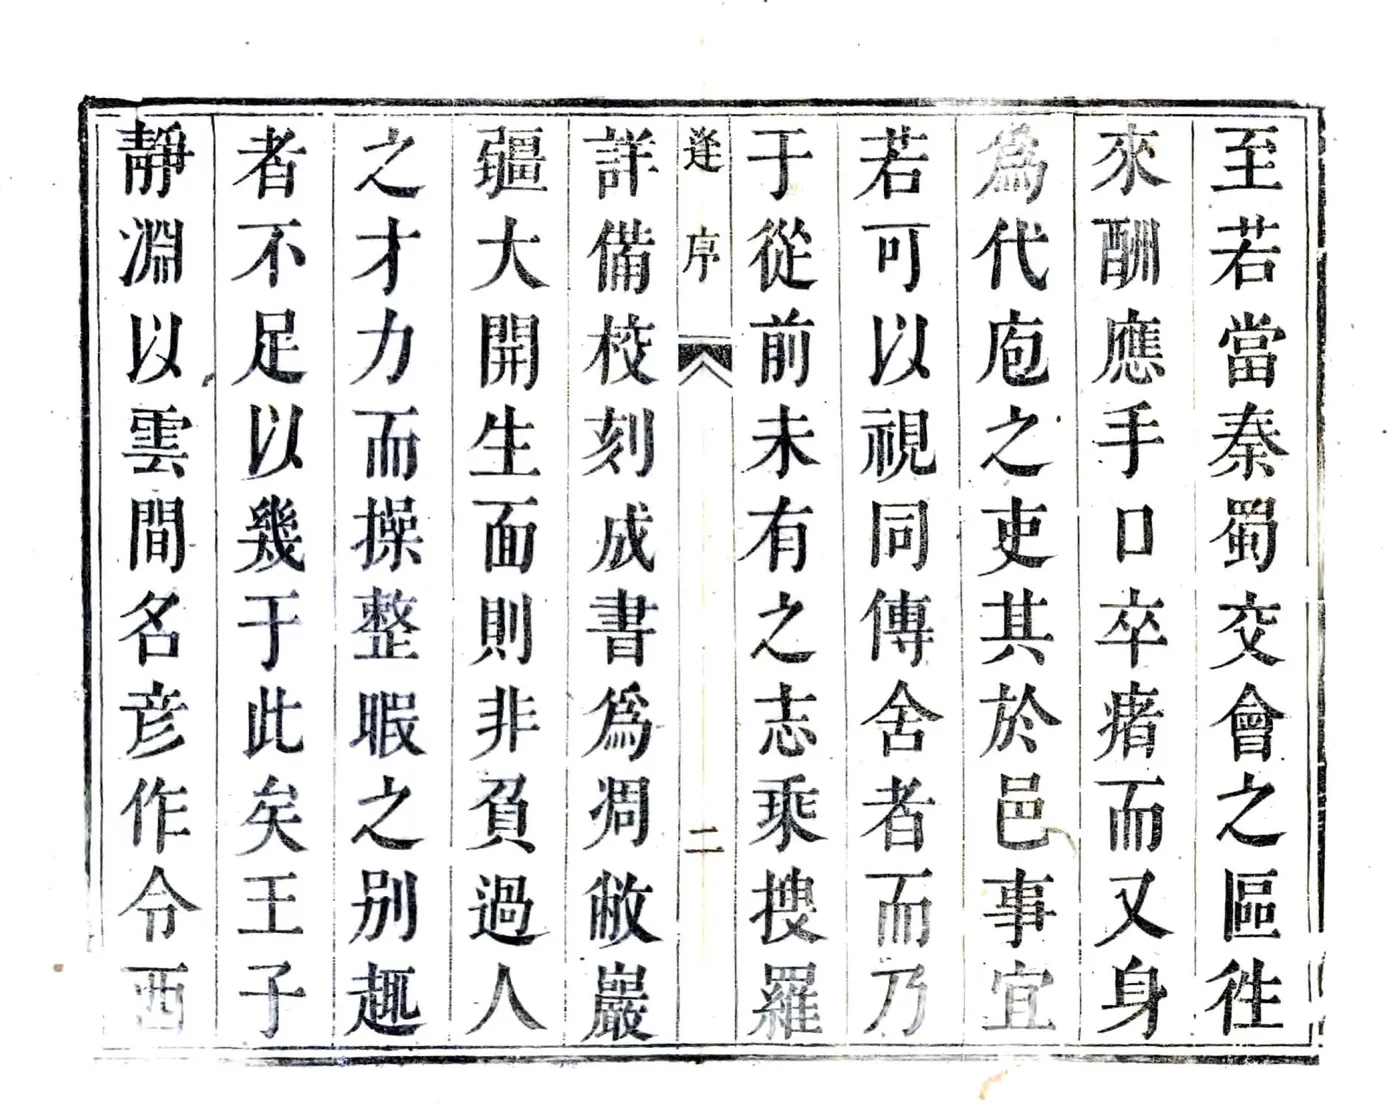 至若當秦蜀交會之區徃
來酬應手口卒瘏而又身
爲代庖之吏其於邑事宜
若可以視同傳舍者而乃
于從前未有之志乘搜羅
逄序
二
詳備校刻成書爲凋敝巖
疆大開生面則非負過人
之才力而操整暇之别趣
者不足以幾于此矣王子
靜淵以雲間名彦作令西